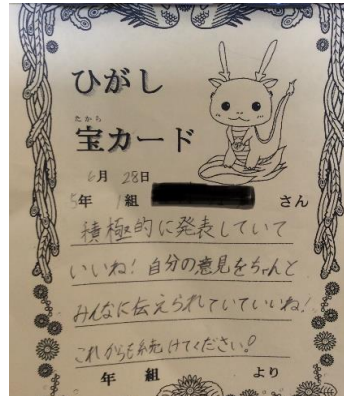 ひがし
たから
宝カード
6月 28日
5年 1組 さん
積極的に発表していて
いいね！自分の意見をちゃんと
みんなに伝えられていていいね！
これからも続けてください！
年 組 より